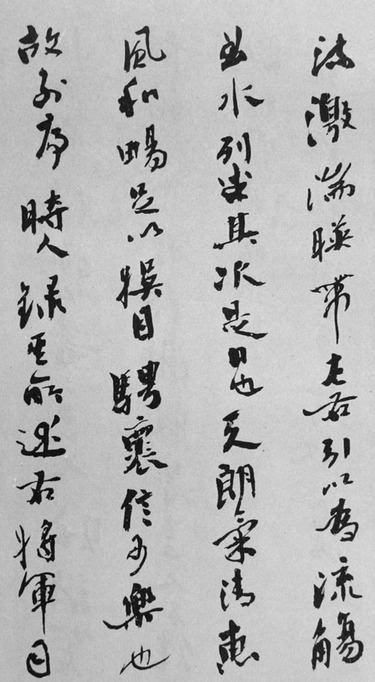 流激湍暎帶左右引以為流觴
曲水列坐其次是日也天朗氣清惠
風和暢足以娛目騁懷信可樂也
故列序時人錄其所述右將軍